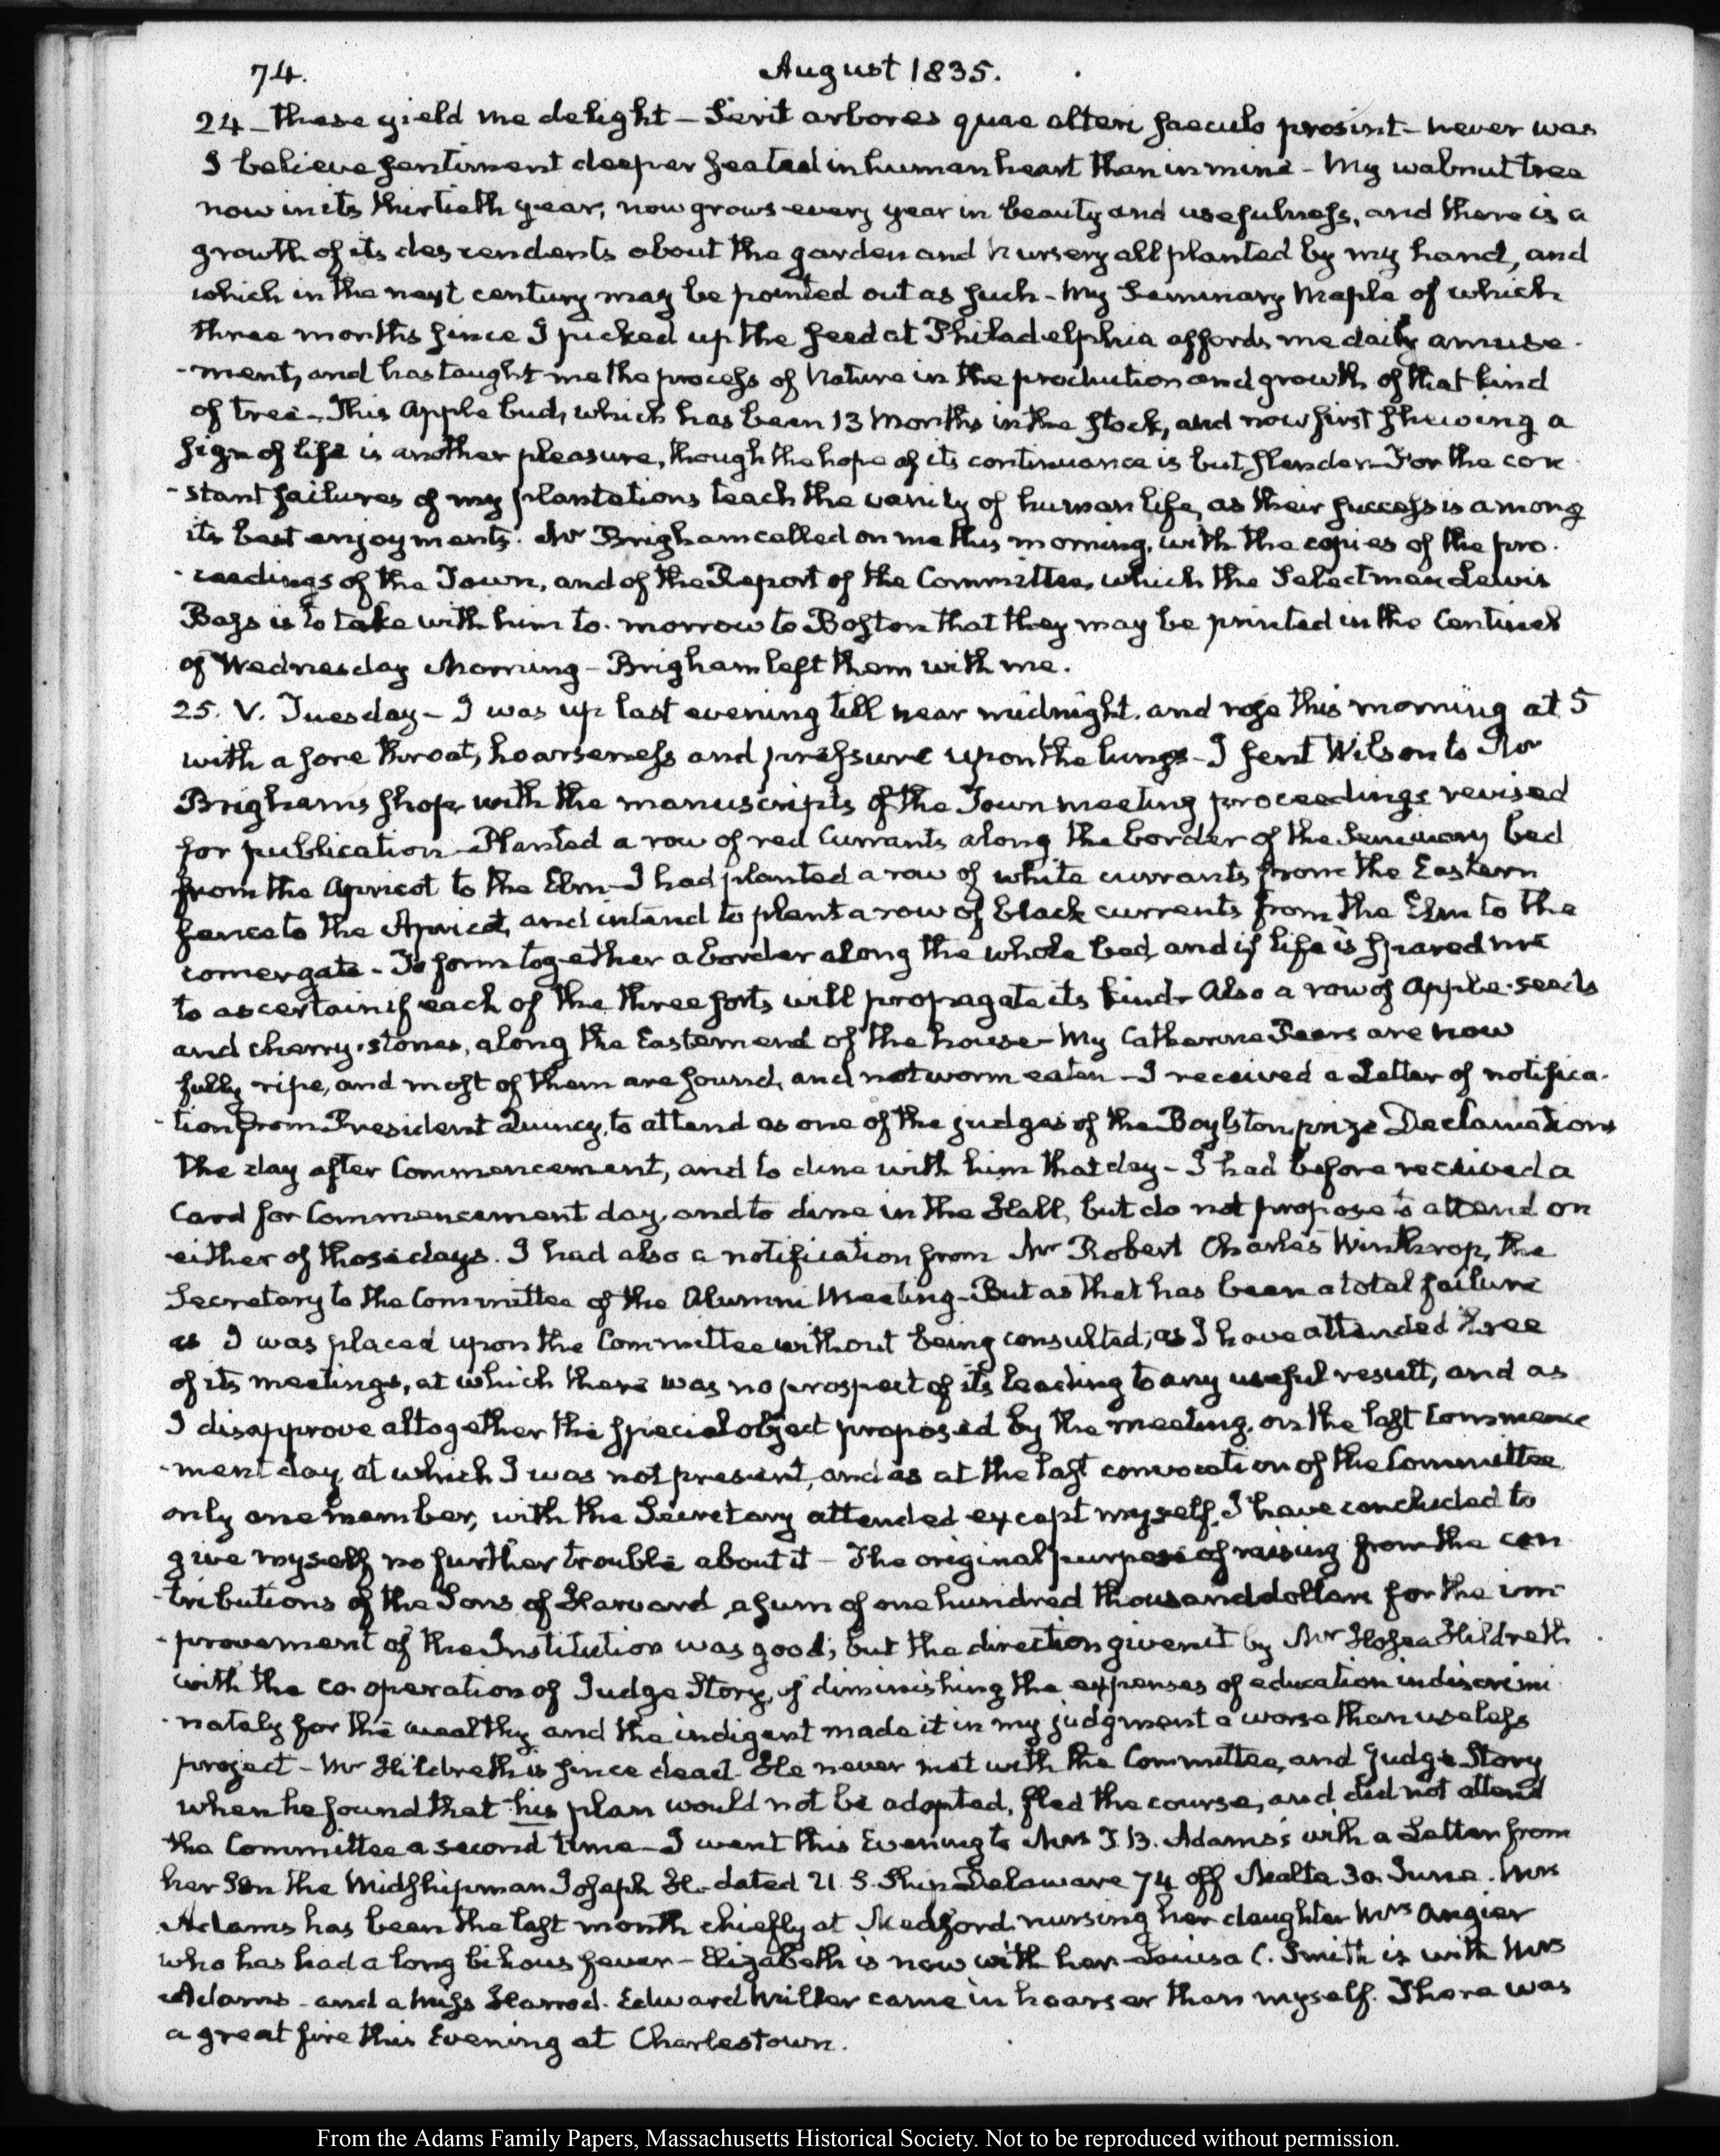 74. August 1835.
24 – these yield me delight – Serit arbores quae alteri saeculo prosint – never was
I believe sentiment deeper seated in human heart than in mine – My walnut tree
now in its thirtieth year, now grows every year in beauty and usefulness, and there is a
growth of its descendents about the garden and nursery all planted by my hand, and
which in the next century may be pointed out as such – My Seminary Maple of which
three months since I picked up the seed at Philadelphia affords me daily amuse-
-ment, and has taught me the process of Nature in the production and growth of that kind
of tree – This Apple bud, which has been 13 Months in the stock, and now first shewing a
sign of life is another pleasure, though the hope of its continuance is but slender – For the con-
-stant failures of my plantations teach the vanity of human life, as their success is among
its best enjoyments. Mr Brigham called on me this morning, with the copies of the pro-
-ceedings of the Town, and of the Report of the Committee, which the Selectman Lewis
Bass is to take with him to-morrow to Boston that they may be printed in the Centinel
of Wednesday Morning – Brigham left them with me.
25. V. Tuesday – I was up last evening till near midnight, and rose this morning at 5
with a sore throat, hoarseness and pressure upon the lungs – I sent Wilson to Mr
Brigham's shop, with the manuscripts of the Town meeting proceedings revised
for publication – Planted a row of red Currants along the border of the Seminary bed
from the Apricot to the Elm – I had planted a row of white currants from the Eastern
fence to the Apricot, and intend to plant a row of black currents from the Elm to the
corner gate – To form together a border along the whole bed, and if life is spared me
to ascertain if each of the three sorts will propagate its kind – Also a row of Apple-seeds
and cherry-stones, along the Eastern end of the house – My Catharine Pears are now
fully ripe, and most of them are sound, and not worm eaten – I received a Letter of notifica-
-tion from President Quincy, to attend as one of the judges of the Boylston prize Declamations
the day after Commencement, and to dine with him that day – I had before received a
Card for Commencement day, and to dine in the Hall, but do not propose to attend on
either of those days. I had also a notification from Mr Robert Charles Winthrop, the
Secretary to the Committee of the Alumni Meeting – But as that has been a total failure
as I was placed upon the Committee without being consulted, as I have attended three
of its meetings, at which there was no prospect of its leading to any useful result, and as
I disapprove altogether the special object proposed by the meeting, on the last Commence
-ment day, at which I was not present, and as at the last convocation of the Committee
only one member, with the Secretary attended except myself, I have concluded to
give myself no further trouble about it – The original purpose of raising from the con
-tributions of the Sons of Harvard a sum of one hundred thousand dollars for the im
-provement of the Institution was good; but the direction given it by Mr Hosea Hildreth
with the co-operation of Judge Story, of diminishing the expenses of education indiscrimi
-nately for the wealthy and the indigent made it in my judgment a worse than useless
project – Mr Hildreth is since dead. He never met with the Committee, and Judge Story
when he found that his plan would not be adopted, fled the course, and did not attend
the Committee a second time – I went this Evening to Mrs T. B. Adams's with a Letter from
her Son the Midshipman Joseph H. dated U.S. Ship Delaware 74 off Malta 30. June. Mrs
Adams has been the last month chiefly at Medford nursing her daughter Mrs Angier
who has had a long bilious fever – Elizabeth is now with her – Louisa C. Smith is with Mrs
Adams – and a Miss Harrod. Edward Miller came in hoarser than myself. There was
a great fire this Evening at Charlestown.
From the Adams Family Papers, Massachusetts Historical Society. Not to be reproduced without permission.